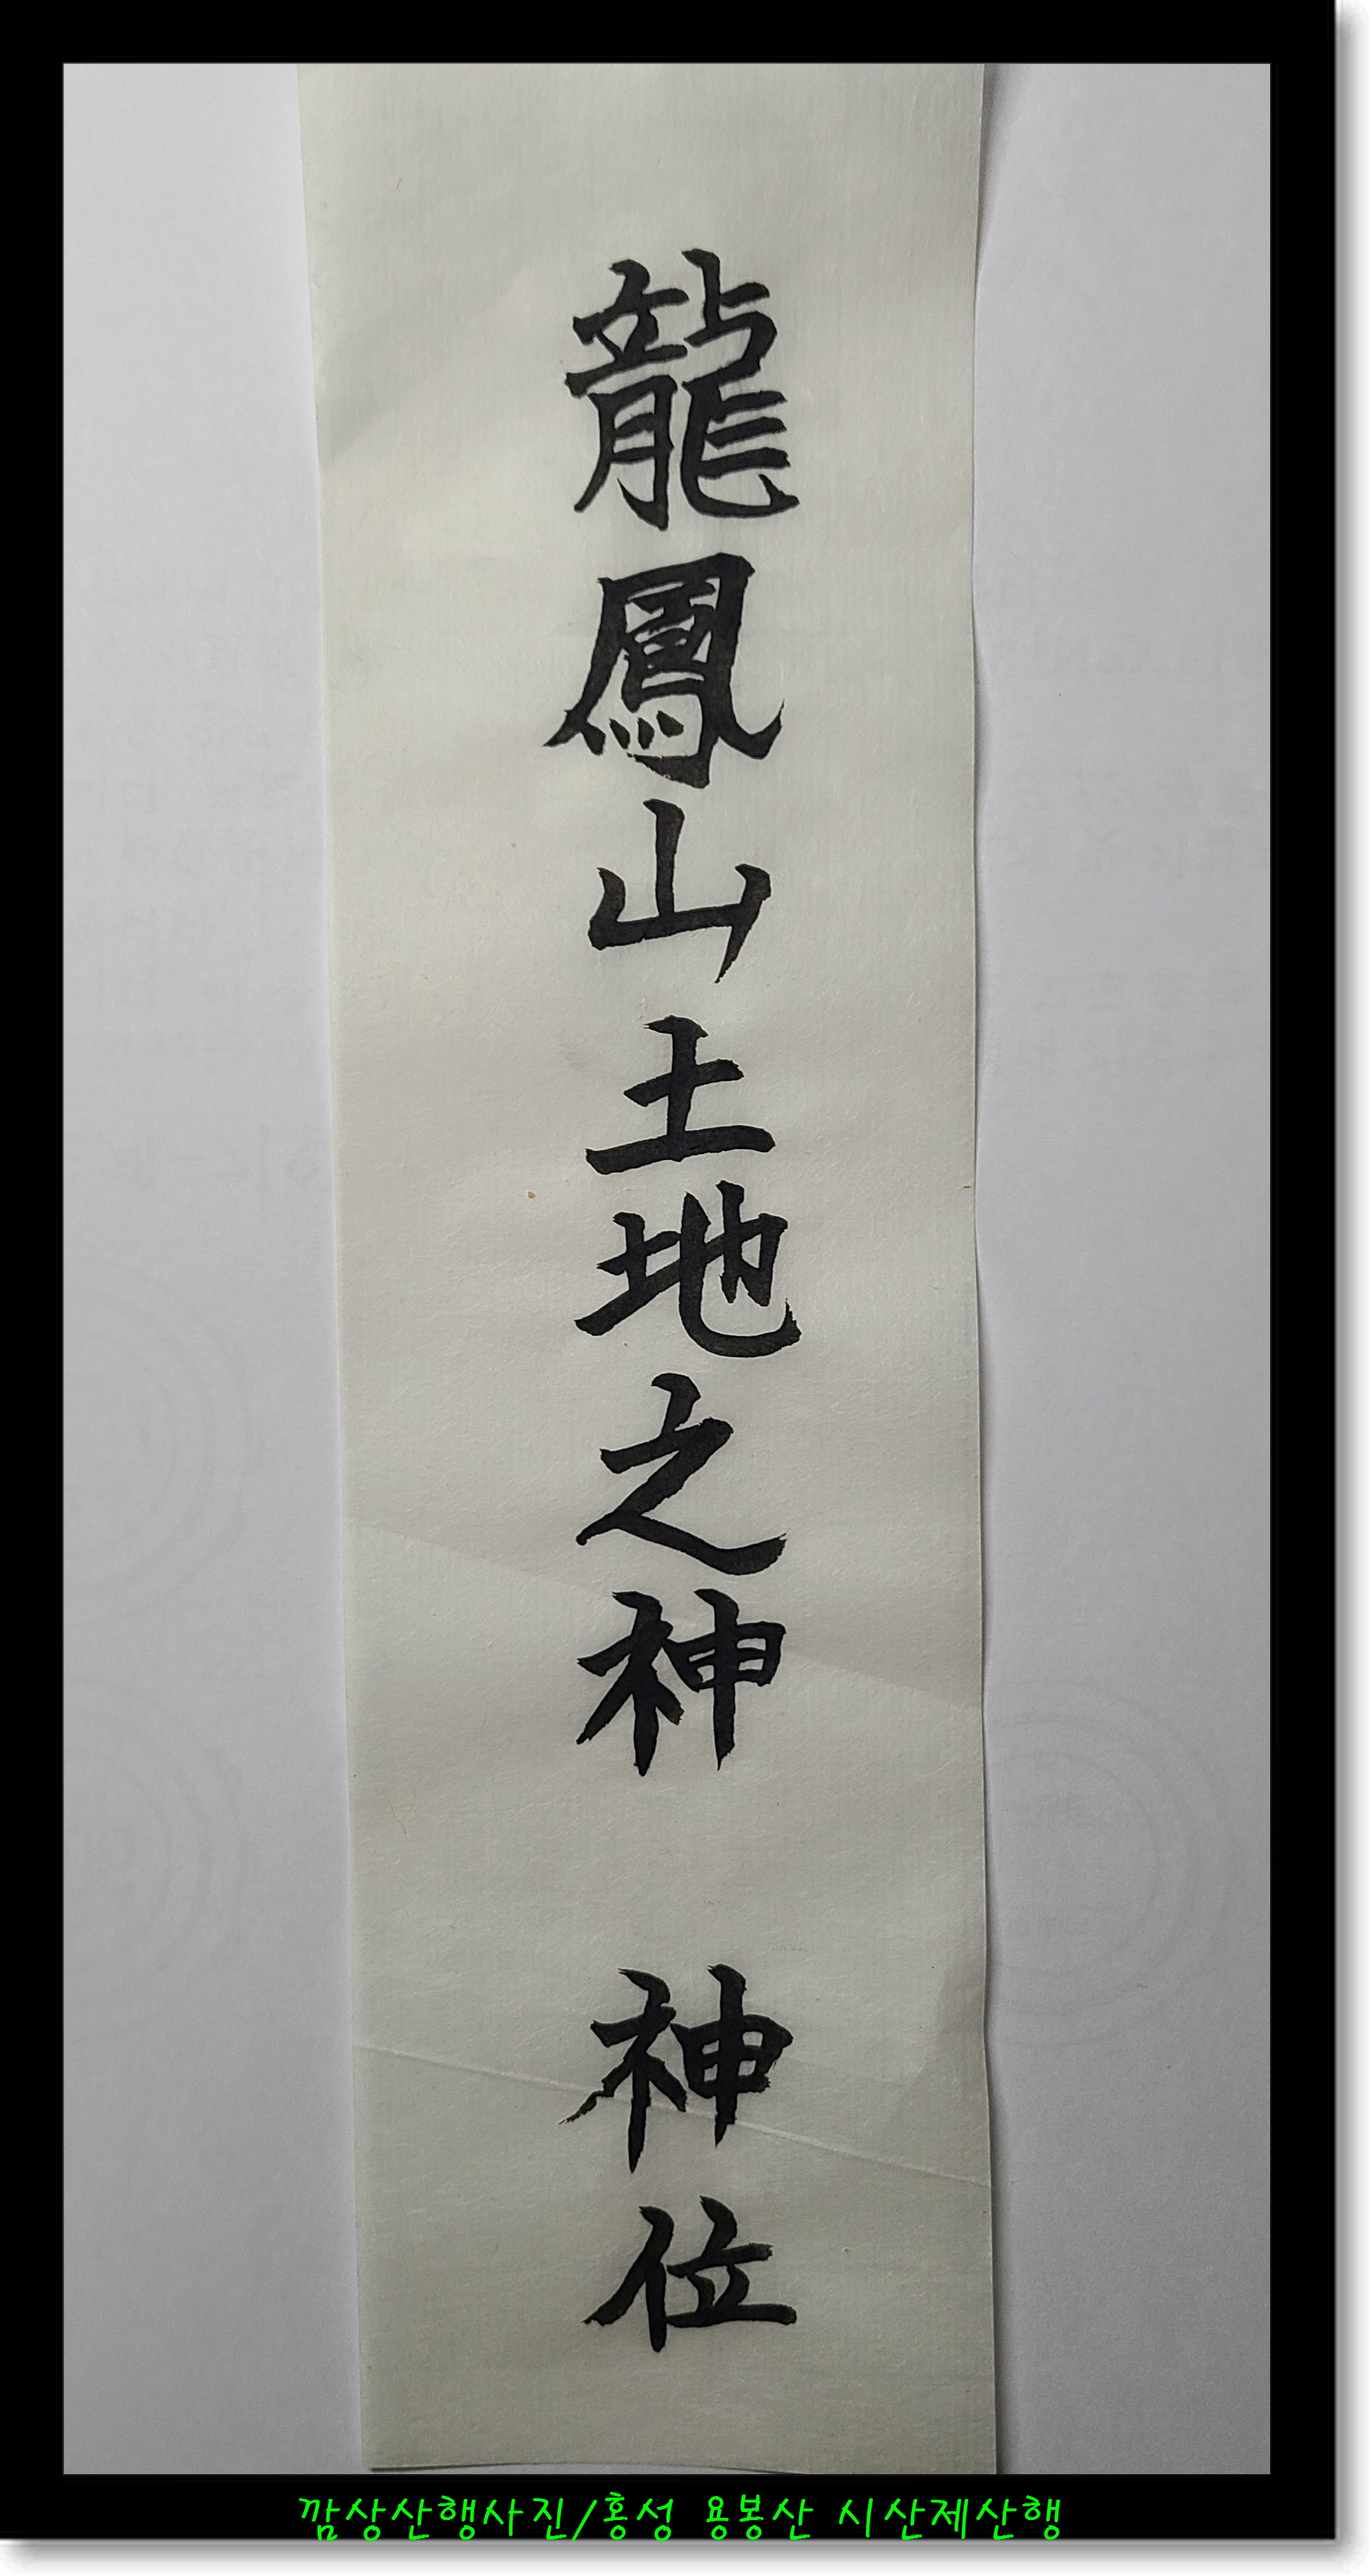 龍鳳山土地之神 神位
깜상산행사진/홍성 용봉산 시산제산행